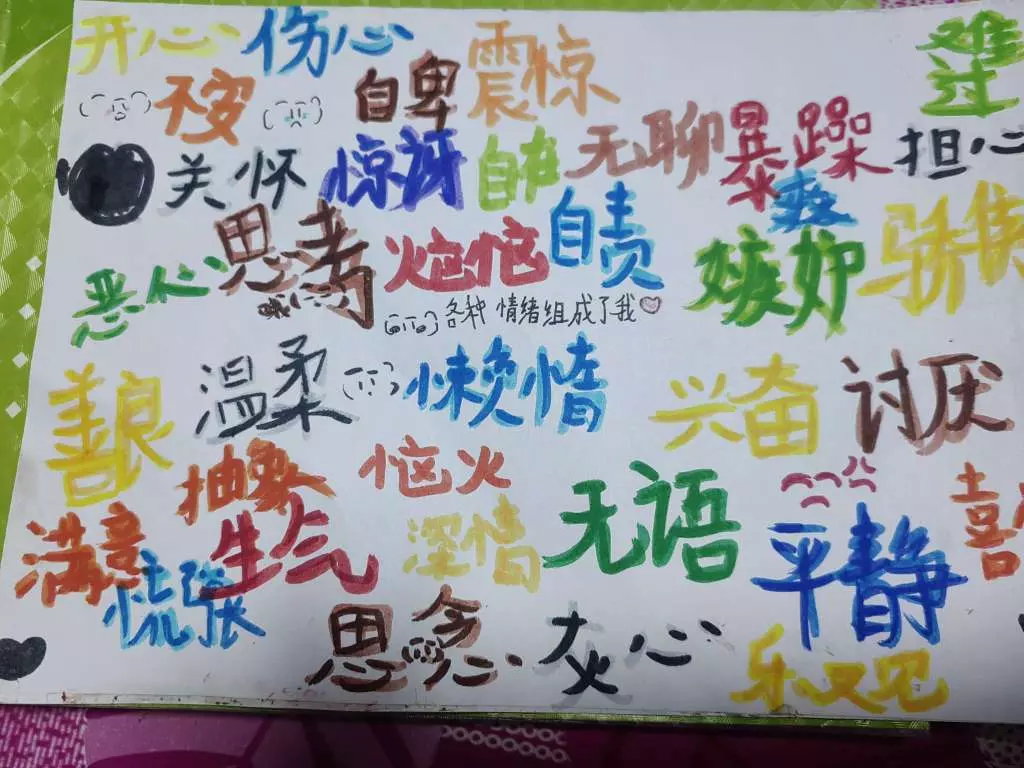 开心 伤心 震惊 难过
不安 自卑
关怀 惊讶 自在 无聊 暴躁 担心
爽
恶心 思考 烦恼 自责 嫉妒 骄傲
各种情绪组成了我
善良 温柔 懒惰 兴奋 讨厌
抽象 恼火
满意 生气 深情 无语 平静 喜
慌张
思念 灰心 乐观